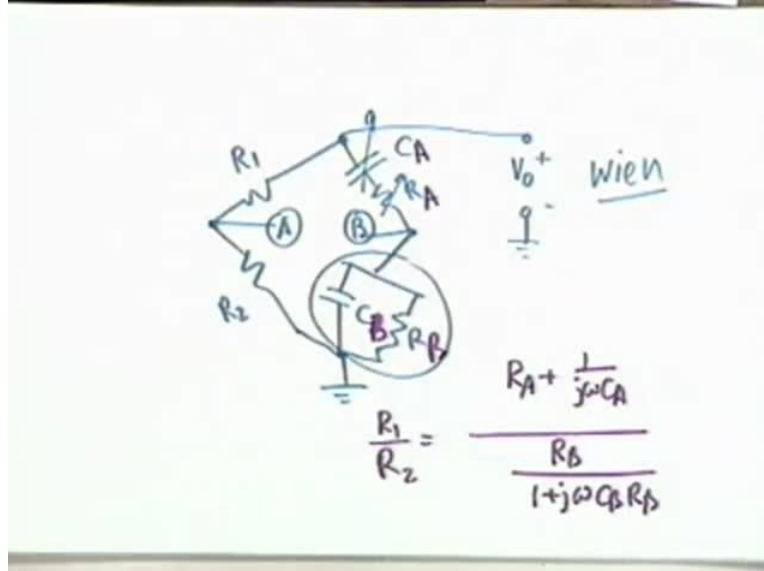 R1
CA
RA
V0
+
-
wien
A
B
R2
CB
RB
R1/R2 = (RA + 1/jωCA) / (RB / 1+jωCBRB)